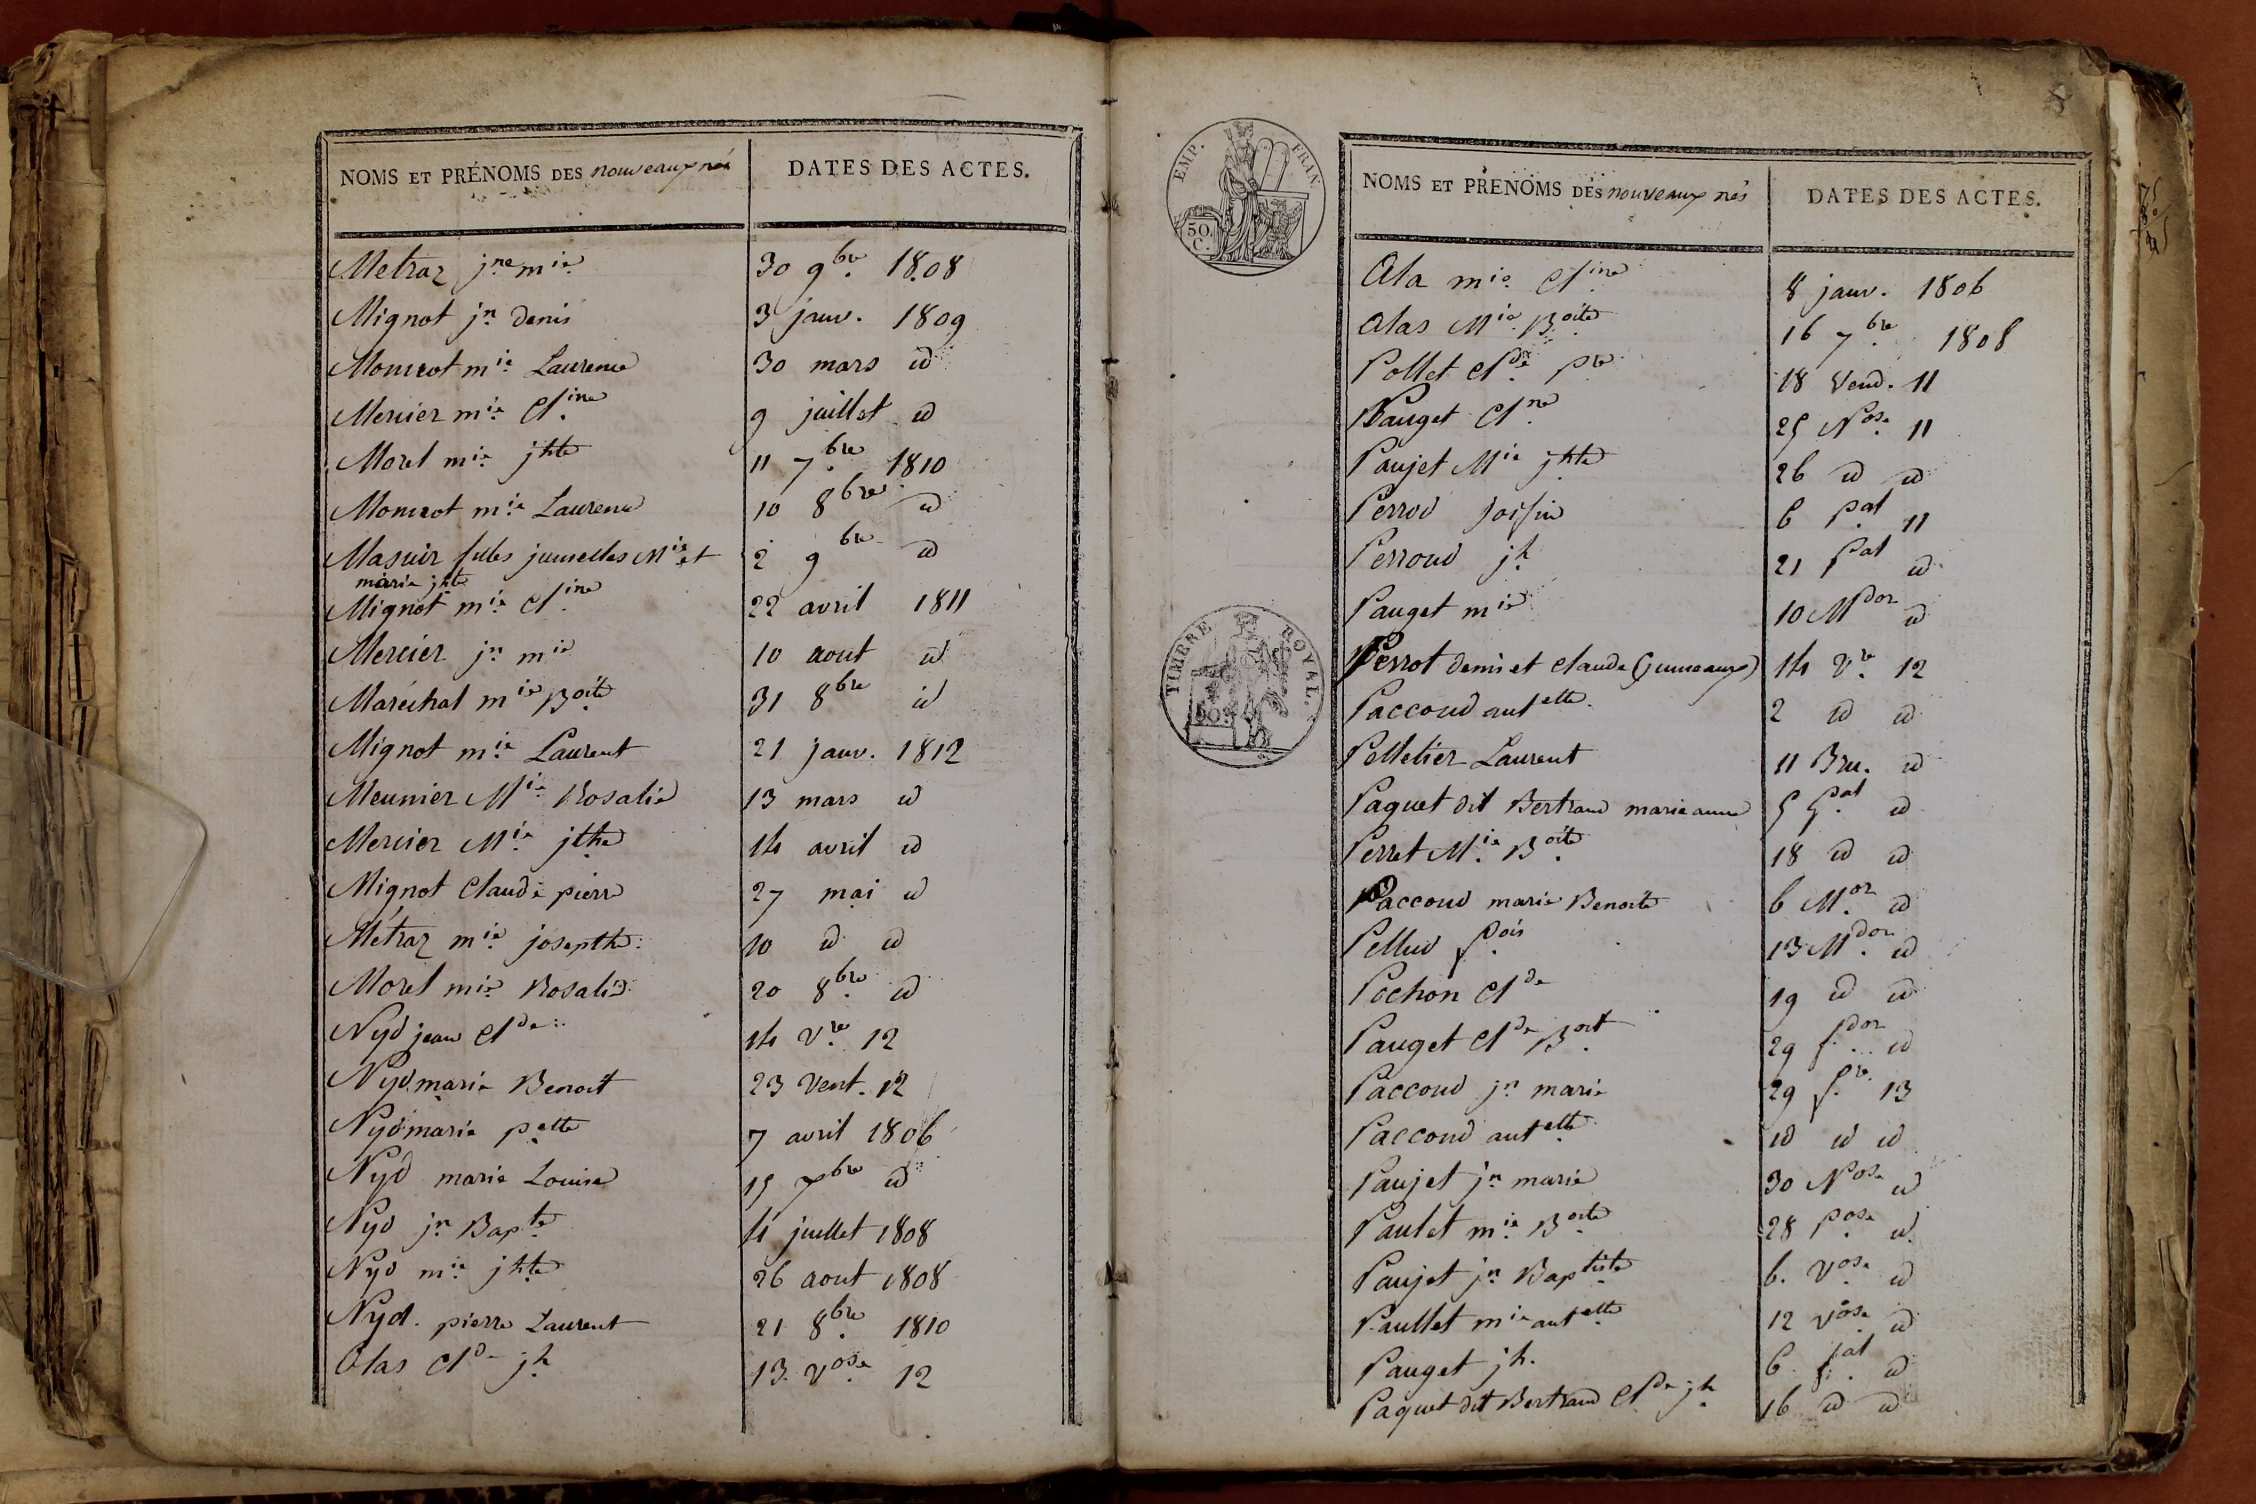 NOMS ET PRÉNOMS DES nouveaux nés DATES DES ACTES.
Metraz jne mie 30 9bre 1808
Mignot jn denis 3 janv. 1809
Moncrot mie Laurence 30 mars id
Mercier mie Cline 9 juillet id
Morel mie jhte 11 7bre 1810
Moncrot mie Laurence 10 8bre id
Masuir filles jumelles Mie et 2 9bre id
marie jhte
Mignot mie Cline 22 avril 1811
Mercier jn mie 10 aout id
Maréchal mie Boite 31 8bre id
Mignot mie Laurent 21 janv. 1812
Meunier Mie Rosalie 13 mars id
Mercier Mie jthe 14 avril id
Mignot Claude pierre 27 mai id
Métraz mie josepthe 10 id id
Morel mie Rosalie 20 8bre id
Nyd jean Clde 14 Vre 12
Nyd marie Benoit 23 Vent. 12
Nyd marie pette 7 avril 1806
Nyd marie Louise 15 7bre id
Nyd jn Bapte 4 juillet 1808
Nyd mie jhte 26 aout 1808
Nyd. pierre Laurent 21 8bre 1810
Olas Cld jh 13 Vose 12
EMP. FRAN.
50 C.
NOMS ET PRÉNOMS DES nouveaux nés DATES DES ACTES.
Ola mie Cline 8 janv. 1806
Olas Mie Boite 16 7bre 1808
Pollet Clde pre 18 Vend. 11
Pauget Clne 25 Nose 11
Paujet Mie jhte 26 id id
Perrod 6 Pal 11
Perroud jh 21 Pal id
Pauget mie 10 Mdor id
TIMBRE ROYAL.
Perrot denis et claude (jumeaux) 14 Vre 12
Paccoud antette 2 id id
Pelletier Laurent 11 Bru. id
Paquet dit Bertrand marie anne 5 Gal id
Perret Mie Boite 18 id id
Paccoud marie Benoite 6 Mor id
Pellud fois 13 Mdor id
Pochon Clde 19 id id
Pauget Clde Boit 29 fdor id
Paccoud jn marie 29 fre 13
Paccoud antette id id id
Paujet jn marie 30 Nose id
Paulet mie Boite 28 Pose id
Paujet jn Baptiste 6. Vose id
Paullet mie antette 12 Vose id
Pauget jh. 6 fal id
Paquet dit Bertrand Clde jh 16 id id